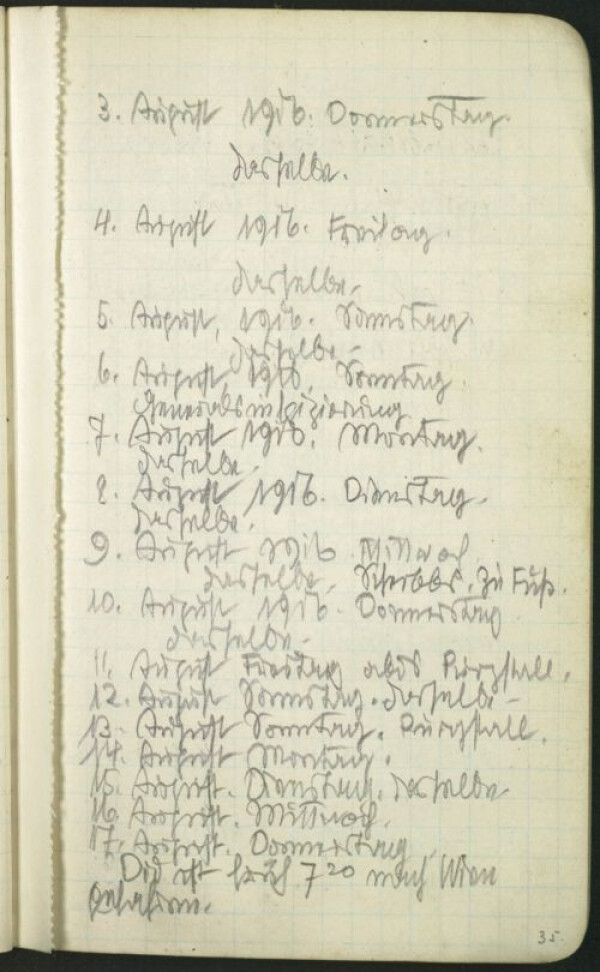 3. August 1916. Donnerstag.
Dasselbe.
4. August 1916. Freitag.
Dasselbe.
5. August, 1916. Samstag.
Dasselbe.
6. August, 1916. Sonntag.
Generalsinspizierung
7. August 1916. Montag.
Dasselbe.
8. August 1916. Dienstag.
Dasselbe.
9. August 1916 Mittwoch
Dasselbe. Scheibbs. Zu Fuß.
10. August 1916. Donnerstag
Dasselbe.
11. August Freitag Purgstall.
12. August Samstag. Dasselbe.
13. August Sonntag. Purgstall.
14. August Montag.
15. August. Dienstag. Dasselbe
16. August. Mittwoch.
17. August. Donnerstag
ist früh 7 20 nach Wien
gefahren.
35.